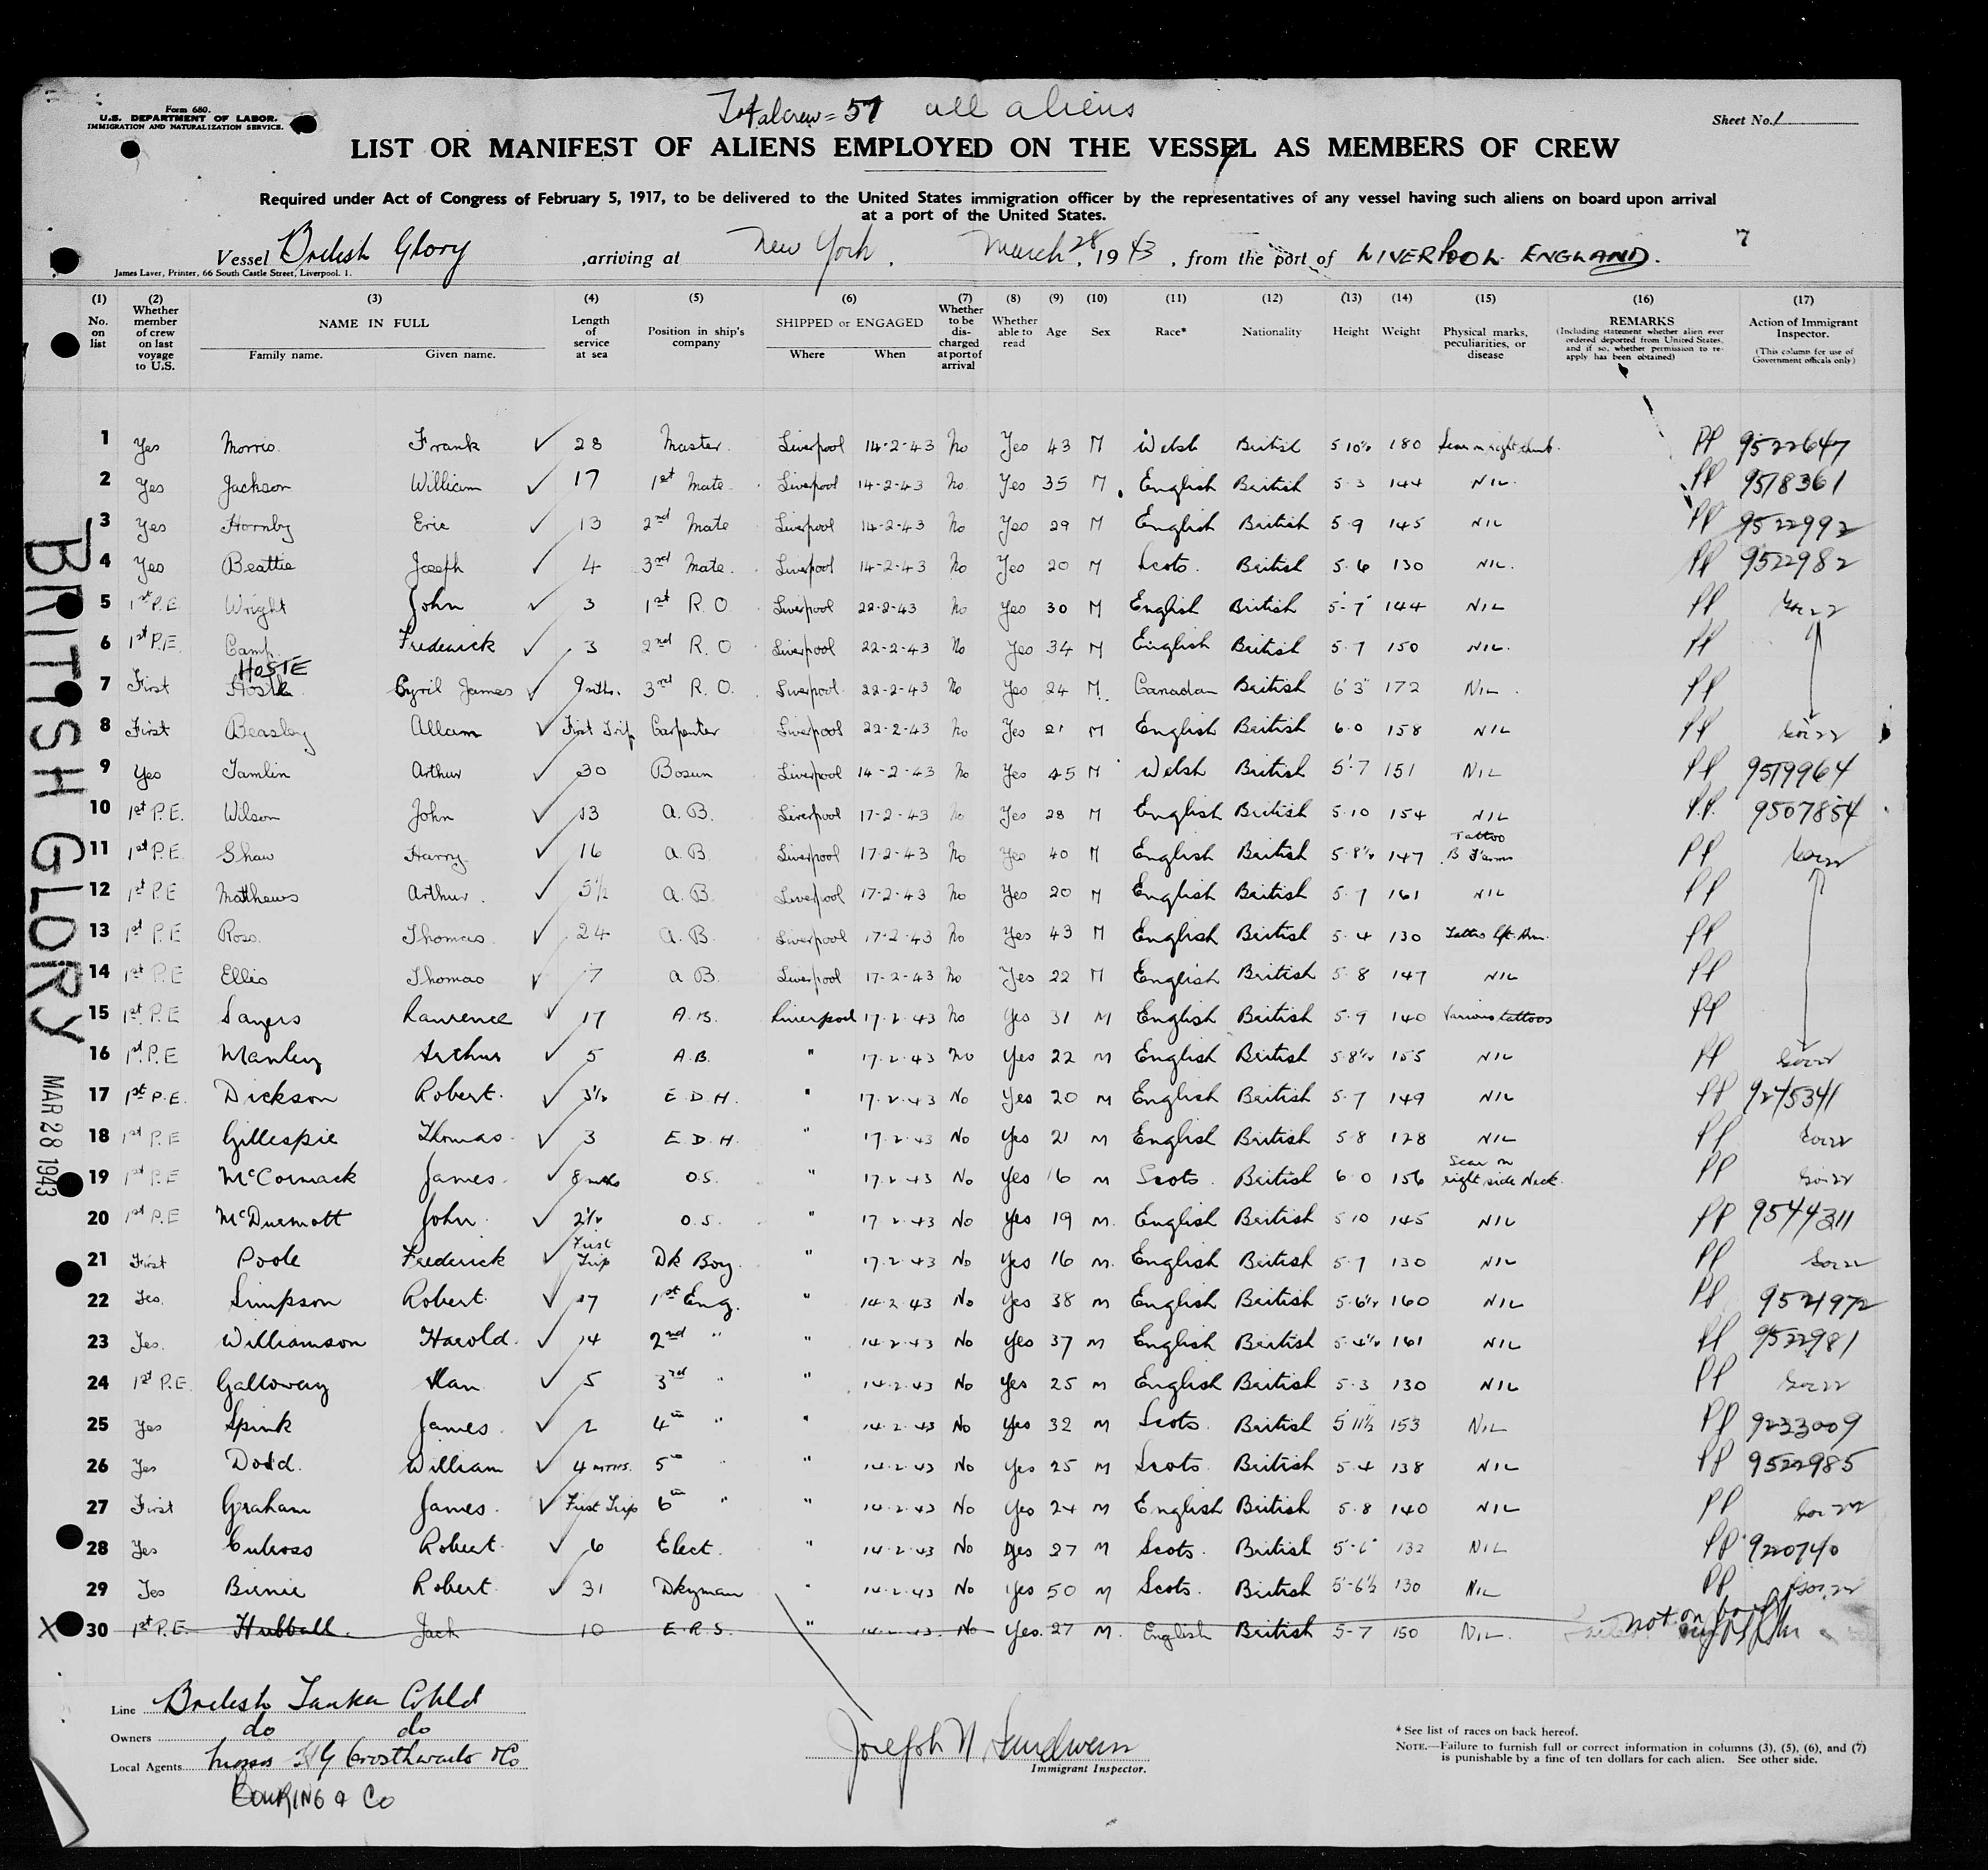 Form 680.
U.S. DEPARTMENT OF LABOR.
IMMIGRATION AND NATURALIZATION SERVICE.
Total crew = 57 all aliens
Sheet No. 1
LIST OR MANIFEST OF ALIENS EMPLOYED ON THE VESSEL AS MEMBERS OF CREW
Required under Act of Congress of February 5, 1917, to be delivered to the United States immigration officer by the representatives of any vessel having such aliens on board upon arrival
at a port of the United States.
7
Vessel British Glory , arriving at New York, March 28, 1943, from the port of LIVERPOOL ENGLAND.
James Laver, Printer, 66 South Castle Street, Liverpool. 1.
(1) No. on list
(2) Whether member of crew on last voyage to U.S.
(3) NAME IN FULL
Family name. Given name.
(4) Length of service at sea
(5) Position in ship's company
(6) SHIPPED or ENGAGED
Where When
(7) Whether to be discharged at port of arrival
(8) Whether able to read
(9) Age
(10) Sex
(11) Race*
(12) Nationality
(13) Height
(14) Weight
(15) Physical marks, peculiarities, or disease
(16) REMARKS
(Including statement whether alien ever ordered deported from United States, and if so, whether permission to re-apply has been obtained)
(17) Action of Immigrant Inspector.
(This column for use of Government officials only)
1 Yes Morris Frank ✓ 28 Master. Liverpool 14-2-43 No Yes 43 M Welsh British 5 10½ 180 Scar on right thumb. PP 9522647
2 Yes Jackson William ✓ 17 1st Mate. Liverpool 14-2-43 No Yes 35 M English British 5 3 144 NIL. PP 9518361
3 Yes Hornby Eric ✓ 13 2nd Mate Liverpool 14-2-43 No Yes 29 M English British 5 9 145 NIL PP 9522992
4 Yes Beattie Joseph ✓ 4 3rd Mate. Liverpool 14-2-43 No Yes 20 M Scots. British 5.6 130 NIL. PP 9522982
5 1st P.E Wright John ✓ 3 1st R.O Liverpool 22-2-43 No Yes 30 M English British 5-7 144 NIL PP
6 1st P.E. Camp Frederick ✓ 3 2nd R.O Liverpool 22-2-43 No Yes 34 M English British 5 7 150 NIL. PP
HOSTE
7 First Cyril James ✓ 9 mths. 3rd R.O. Liverpool 22-2-43 No Yes 24 M. Canadian British 6 3 172 NIL. PP
8 First Beasley Allam ✓ First Trip Carpenter Liverpool 22-2-43 No Yes 21 M English British 6.0 158 NIL PP
9 Yes Tamlin Arthur ✓ 30 Bosun Liverpool 14-2-43 No Yes 45 M Welsh British 5'.7 151 NIL PP 9519964
10 1st P.E. Wilson John ✓ 13 A.B. Liverpool 17-2-43 No Yes 28 M English British 5.10 154 NIL P.P. 9507854
11 1st P.E Shaw Harry ✓ 16 A.B. Liverpool 17-2-43 No Yes 40 M English British 5.8½ 147 Tattoo PP
12 1st P.E Matthews Arthur. ✓ 5½ A.B. Liverpool 17-2-43 No Yes 20 M English British 5.7 161 NIL PP
13 1st P.E Ross. Thomas. ✓ 24 A.B. Liverpool 17-2-43 No Yes 43 M English British 5.4 130 Tattoo lft. Arm. PP
14 1st P.E Ellis Thomas ✓ 7 A B. Liverpool 17-2-43 No Yes 22 M English British 5.8 147 NIL PP
15 1st P.E Sayers Laurence ✓ 17 A.B. Liverpool 17.2.43 No Yes 31 M English British 5.9 140 Various tattoos PP
16 1st P.E Manley Arthur ✓ 5 A.B. " 17.2.43 No Yes 22 M English British 5.8½ 155 NIL PP
17 1st P.E. Dickson Robert. ✓ 3½ E.D.H. " 17.2.43 No Yes 20 M English British 5.7 149 NIL PP 9245341
18 1st P.E Gillespie Thomas. ✓ 3 E.D.H. " 17.2.43 No Yes 21 M English British 5.8 128 NIL PP
19 1st P.E McCormack James. ✓ 8 mths O.S. " 17.2.43 No Yes 16 M Scots. British 6 0 156 Scar on right side Neck. PP
20 1st P.E McDurmott John. ✓ 2½ O.S. " 17.2.43 No Yes 19 M. English British 5 10 145 NIL PP 9544311
21 First Poole Frederick ✓ First Trip Dk Boy. " 17.2.43 No Yes 16 M. English British 5.7 130 NIL PP
22 Yes. Simpson Robert. ✓ 17 1st Eng. " 14.2.43 No Yes 38 M English British 5.6½ 160 NIL PP 9521972
23 Yes. Williamson Harold. ✓ 14 2nd " " 14.2.43 No Yes 37 M English British 5.4½ 161 NIL PP 9522981
24 1st P.E. Galloway Alan ✓ 5 3rd " " 14.2.43 No Yes 25 M English British 5.3 130 NIL PP
25 Yes Spink James. ✓ 2 4th " " 14.2.43 No Yes 32 M Scots. British 5 11½ 153 NIL PP 9233009
26 Yes Dodd. William ✓ 4 MTHS. 5th " " 14.2.43 No Yes 25 M Scots. British 5.4 138 NIL PP 9522985
27 First Graham James. ✓ First Trip 6th " " 14.2.43 No Yes 24 M English British 5.8 140 NIL PP
28 Yes Culross Robert. ✓ 6 Elect. " 14.2.43 No Yes 27 M Scots. British 5-6 132 NIL PP 9220740
29 Yes Birnie Robert. ✓ 31 Dkyman " 14.2.43 No Yes 50 M Scots. British 5-6½ 130 NIL PP
X 30 1st P.E. Hubball. Jack 10 E.R.S. " 14.2.43. No Yes. 27 M. English British 5-7 150 NIL. not on
BRITISH GLORY
MAR 28 1943
Line British Tanker Co Ltd
Owners do do
Local Agents Crosthwaite & Co
BOWRING & Co
Joseph N
Immigrant Inspector.
* See list of races on back hereof.
NOTE.—Failure to furnish full or correct information in columns (3), (5), (6), and (7)
is punishable by a fine of ten dollars for each alien. See other side.